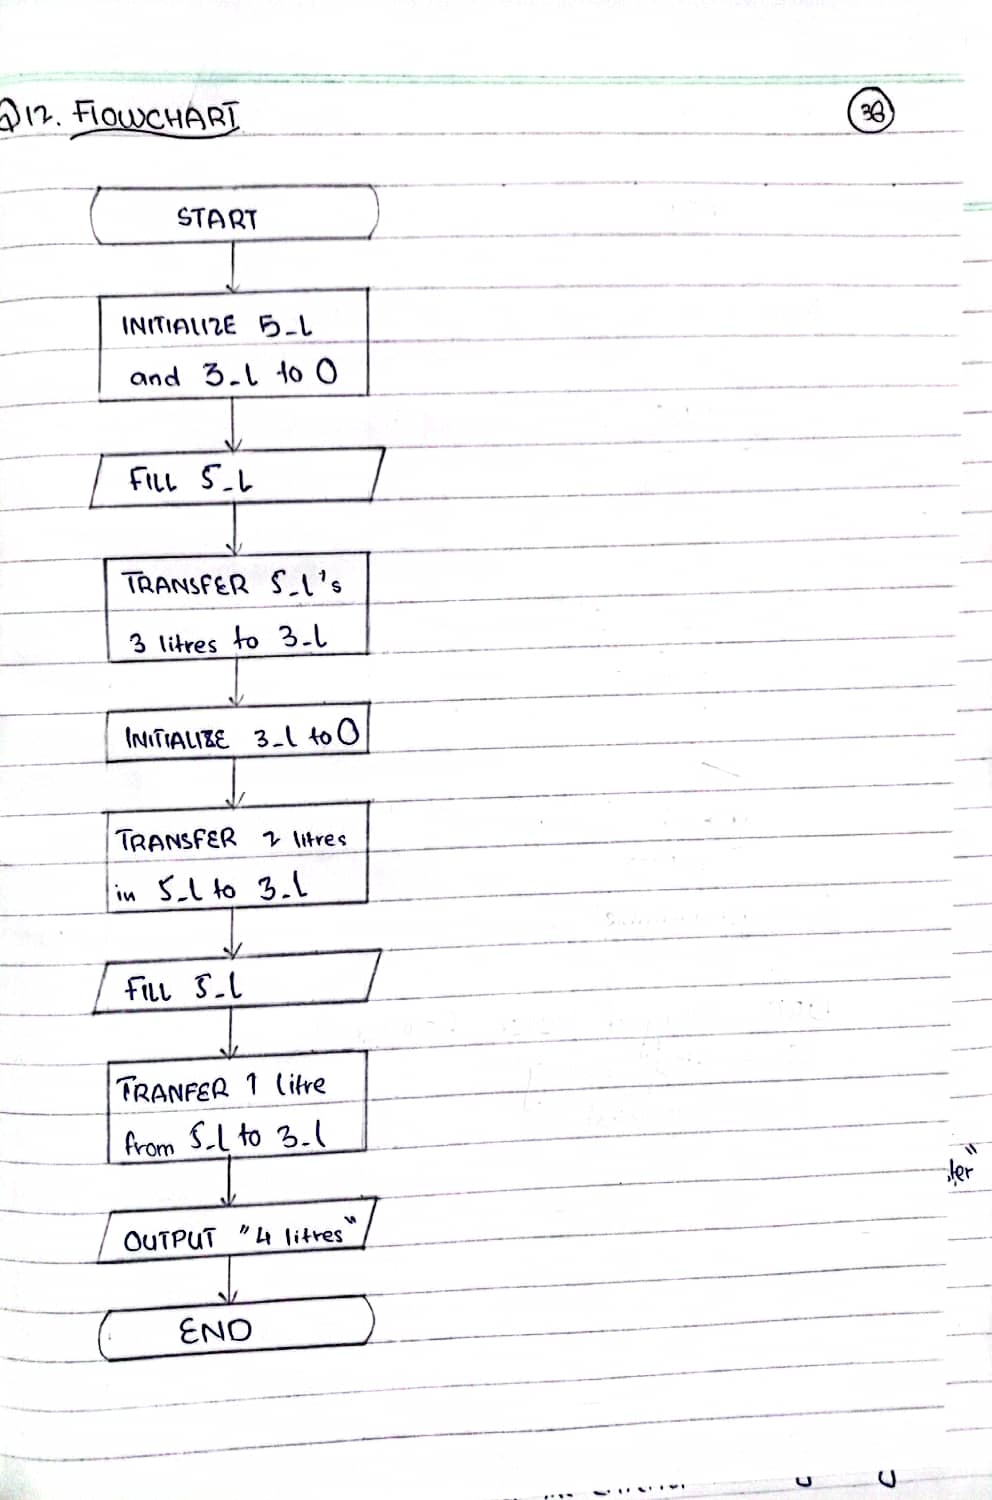 Q12. FLOWCHART
36
START
INITIALIZE 5_L
and 3_L to 0
FILL 5_L
TRANSFER 5_L's
3 litres to 3_L
INITIALIZE 3_L to 0
TRANSFER 2 litres
in 5_L to 3_L
FILL 5_L
TRANFER 1 litre
from 5_L to 3_L
OUTPUT "4 litres"
END